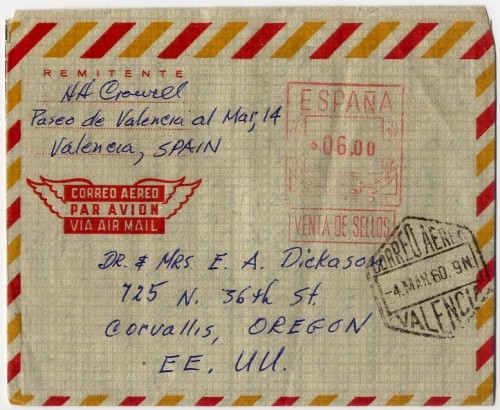 REMITENTE
HH Crowell
Paseo de Valencia al Mar, 14
Valencia, SPAIN
CORREO AEREO
PAR AVION
VIA AIR MAIL
ESPAÑA
06.00
VENTA DE SELLOS
CORREO AEREO
-4.MAR.60. 9N
VALENCIA
DR. & MRS E. A. Dickason
725 N. 36th St.
Corvallis, OREGON
EE. UU.